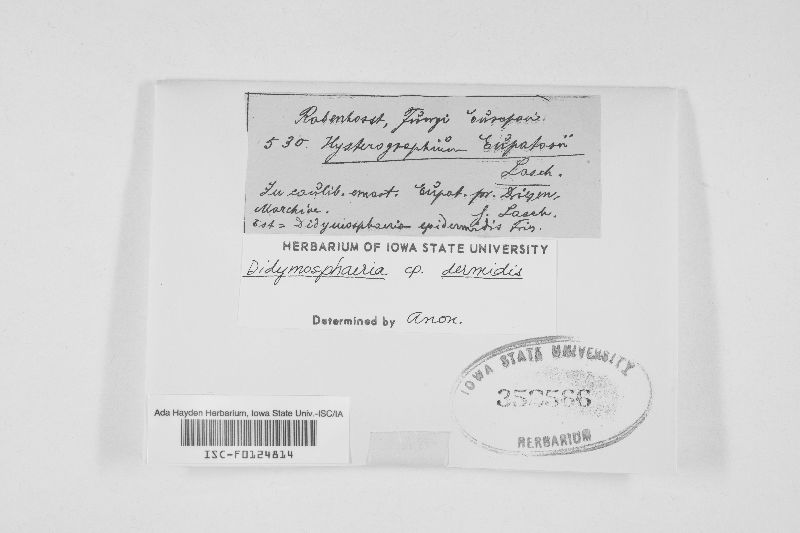 Rabenhorst, Fungi Europaei.
530. Hysterographium Eupatorii
Lasch.
In caulib. emort. Eupat. pr. Driesen,
Marchiae. l. Lasch.
Est = Didymosphaeria epidermidis Fris.
HERBARIUM OF IOWA STATE UNIVERSITY
Didymosphaeria cp. dermidis
Determined by Anon.
IOWA STATE UNIVERSITY
HERBARIUM
Ada Hayden Herbarium, Iowa State Univ.-ISC/IA
ISC-F0124814